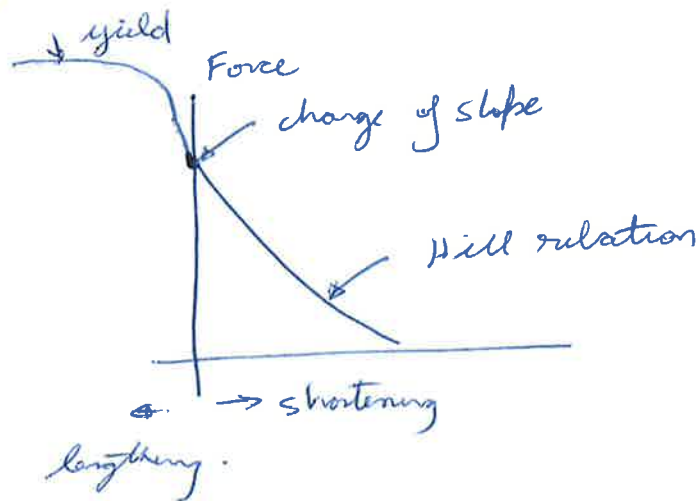 yield
Force
change of slope
Hill relation
← → shortening
lengthening.